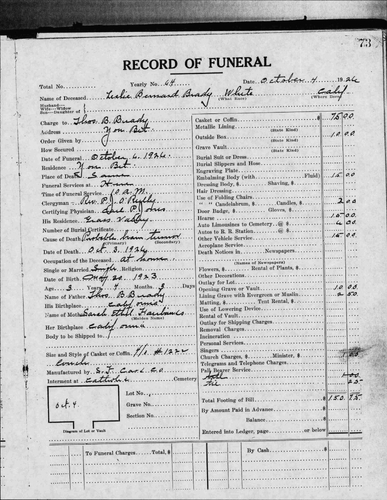 73
RECORD OF FUNERAL
Total No. Yearly No. 64 Date October 4 1926
Name of Deceased Leslie Bernard Brady White Calif
(What Race) (Where Born)
Husband—
Wife—Widow
Son—Daughter of
Charge to Thos. B. Brady
Address You Bet
Order Given by
How Secured
Date of Funeral October 6 1926
Residence You Bet
Place of Death Same
Services at Home
Time of Funeral Service 10 A.M.
Clergyman Rev. P. J. O'Reilly
Certifying Physician Carl P. Jones
His Residence Grass Valley
Number of Burial Certificate
Cause of Death Probable brain tumor
(Primary) (Secondary)
Date of Death Oct. 3 1926
Occupation of the Deceased At home
Single or Married Single Religion
Date of Birth May 30 1923
Age 3 Years 4 Months 3 Days
Name of Father Thos. B. Brady
His Birthplace California
Name of Mother Sarah Ethel Fairbanks
(Maiden Name)
Her Birthplace California
Body to be Shipped to
Size and Style of Casket or Coffin
Couch
Manufactured by S. F. Cas. Co
Interment at Catholic Cemetery
Lot No.
Grave No.
Section No.
Oct. 4
Diagram of Lot or Vault
Casket or Coffin 75 00
Metallic Lining
(State Kind)
Outside Box 10 00
Grave Vault
(State Kind)
Burial Suit or Dress
Burial Slippers and Hose
Engraving Plate
Embalming Body (with Fluid) 15 00
Dressing Body, $ Shaving, $
Hair Dressing
Use of Folding Chairs
" " Candelabrum, $ Candles, $ 2 00
Door Badge, $ Gloves, $
Hearse 15 00
Auto Limousines to Cemetery @ $ 6 00
Autos to R. R. Station @ $
Other Vehicle Service 15 00
Aeroplane Service
Death Notices in Newspapers
(Names of Newspapers)
Flowers, $ Rental of Plants, $
Other Decorations
Outlay for Lot
Opening Grave or Vault 10 00
Lining Grave with Evergreen or Muslin 2 50
Matting, $ Tent Rental, $
Use of Lowering Device
Rental of Vault
Outlay for Shipping Charges
Removal Charges
Incineration
Personal Services
Singers
Church Charges, $ Minister, $
Telegrams and Telephone Charges
Pall Bearer Service
Total Footing of Bill $ 150 75
By Amount Paid in Advance
Balance
Entered into Ledger, page or below.
To Funeral Charges. Total $ By Cash $